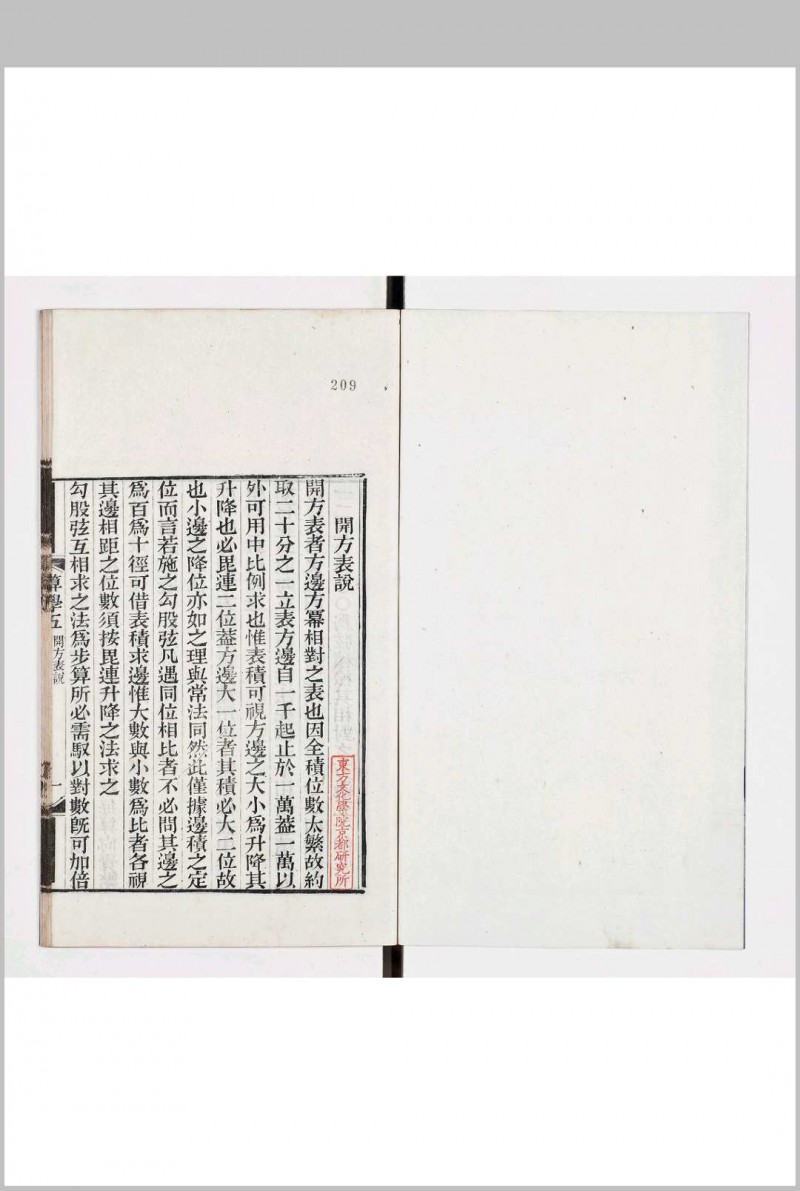 209
開方表說
東方文化學院京都研究所
開方表者方邊方冪相對之表也因全積位數太繁故約
取二十分之一立表方邊自一千起止於一萬葢一萬以
外可用中比例求也惟表積可視方邊之大小爲升降其
升降也必毘連二位葢方邊大一位者其積必大二位故
也小邊之降位亦如之理與常法同然此僅據邊積之定
位而言若施之勾股弦凡遇同位相比者不必問其邊之
爲百爲十徑可借表積求邊惟大數與小數爲比者各視
其邊相距之位數須按毘連升降之法求之
勾股弦互相求之法爲步算所必需馭以對數旣可加倍
算學五
開方表說
一